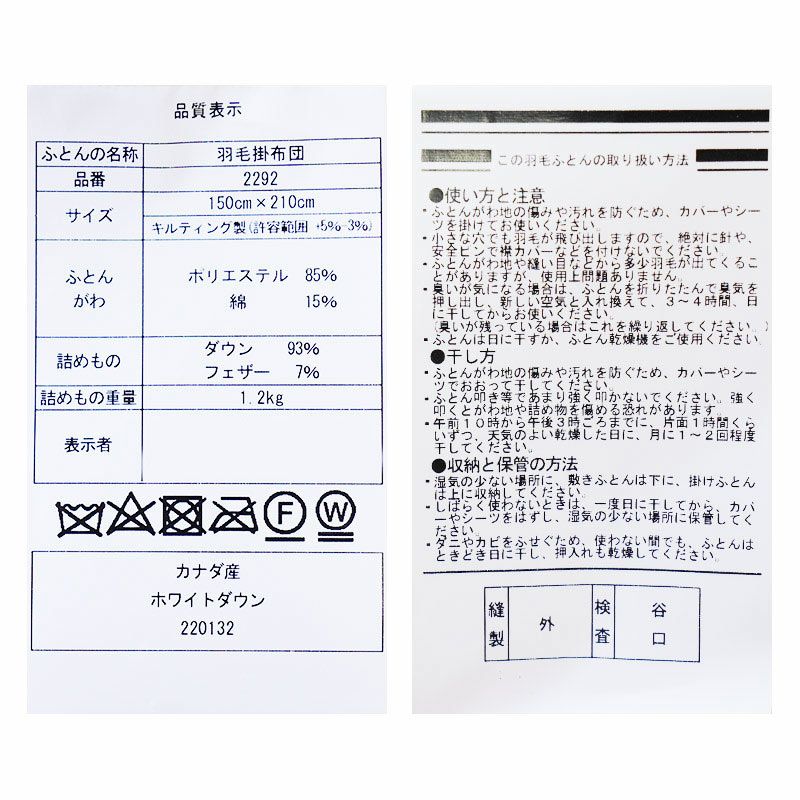 品質表示
ふとんの名称 羽毛掛布団
品番 2292
サイズ 150cm×210cm
キルティング製(許容範囲 +5%-3%)
ふとん ポリエステル 85%
がわ 綿 15%
詰めもの ダウン 93%
フェザー 7%
詰めもの重量 1.2kg
表示者
F W
カナダ産
ホワイトダウン
220132
この羽毛ふとんの取り扱い方法
●使い方と注意
・ふとんがわ地の傷みや汚れを防ぐため、カバーやシー
ツを掛けてお使いください。
・小さな穴でも羽毛が飛び出しますので、絶対に針や、
安全ピンで襟カバーなどを付けないでください。
・ふとんがわ地や縫い目などから多少羽毛が出てくるこ
とがありますが、使用上問題ありません。
・臭いが気になる場合は、ふとんを折りたたんで臭気を
押し出し、新しい空気と入れ換えて、3~4時間、日
に干してからお使いください。
(臭いが残っている場合はこれを繰り返してください。)
・ふとんは日に干すか、ふとん乾燥機をご使用ください。
●干し方
・ふとんがわ地の傷みや汚れを防ぐため、カバーやシー
ツでおおって干してください。
・ふとん叩き等であまり強く叩かないでください。強く
叩くとがわ地や詰め物を傷める恐れがあります。
・午前10時から午後3時ごろまでに、片面1時間くら
いずつ、天気のよい乾燥した日に、月に1~2回程度
干してください。
●収納と保管の方法
・湿気の少ない場所に、敷きふとんは下に、掛けふとん
は上に収納してください。
・しばらく使わないときは、一度日に干してから、カバ
ーやシーツをはずし、湿気の少ない場所に保管してく
ださい。
・ダニやカビをふせぐため、使わない間でも、ふとんは
ときどき日に干し、押入れも乾燥してください。
縫製 外 検査 谷口